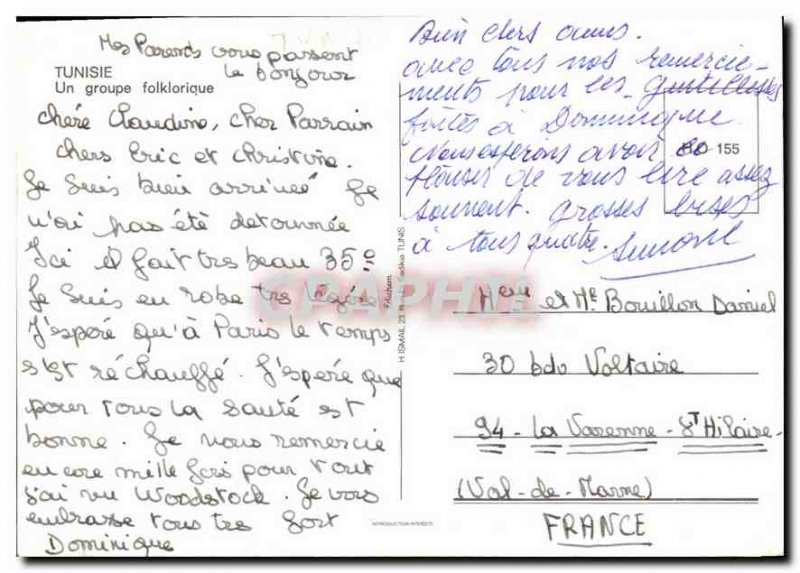 Mes Parents vous passent
le bonjour
TUNISIE
Un groupe folklorique
chère Claudine, cher Parrain
chers Eric et Christine.
Je suis bien arrivée Je
n'ai pas été detournée
Ici il fait tres beau 35°
Je suis en robe tres légère
J'espère qu'à Paris le temps
s'est réchauffé. J'espère que
pour tous la santé est
bonne. Je vous remercie
encore mille fois pour tout
j'ai vu Woodstock. Je vous
embrasse tous tres fort
Dominique
Bien chers amis.
avec tous nos remercie-
ments pour les gentillesses
faites à Dominique.
Nous espérons avoir le
plaisir de vous lire assez
souvent. grosses bises
à tous quatre. Simone
155
H. ISMAIL 23, Tunis
CPAPHIL
Meur et Me Bouillon Daniel
30 bdv Voltaire
94 - La Varenne - St Hilaire -
(Val-de-Marne)
FRANCE
REPRODUCTION INTERDITE